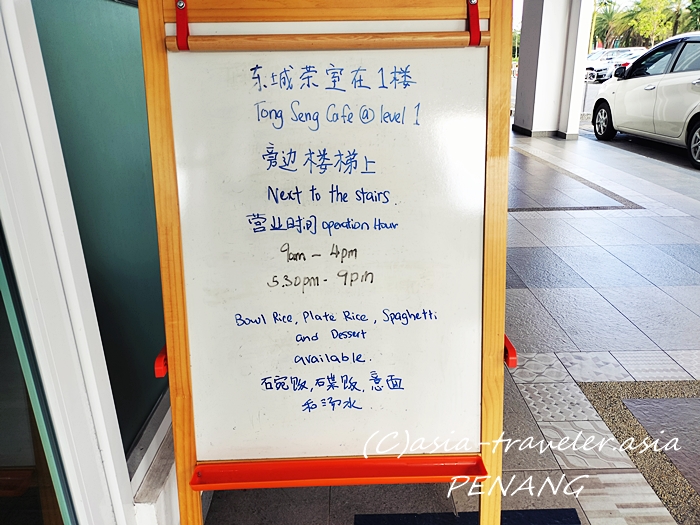 东城茶室在1楼
Tong Seng Cafe @ level 1
旁边楼梯上
Next to the stairs.
营业时间 operation Hour
9am - 4pm
5.30pm - 9pm
Bowl Rice, Plate Rice, Spaghetti
and Dessert
available.
石宛饭,石碟饭,意面
和汤水
(C)asia-traveler.asia
PENANG